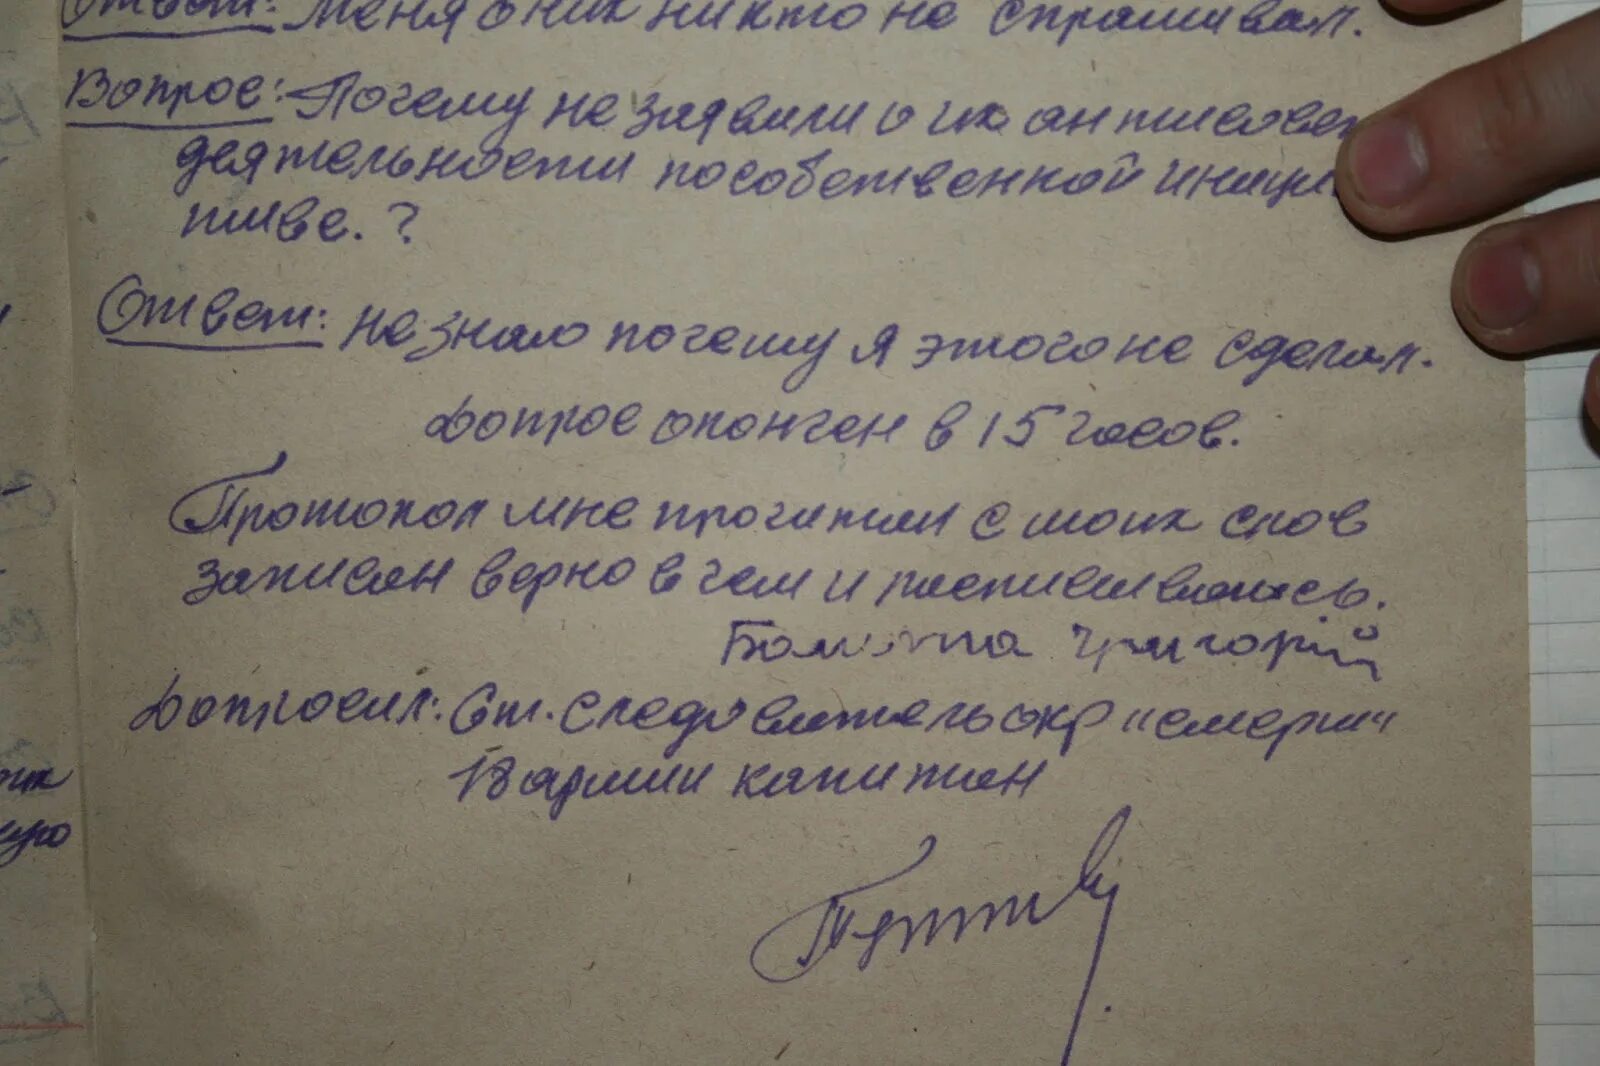 Ответ: Меня о них никто не спрашивал.
Вопрос: Почему не заявили о их антисовет
деятельности по собственной иници
тиве. ?
Ответ: не знаю почему я этого не сделал.
Допрос окончен в 15 часов.
Протокол мне прочитан с моих слов
записан верно в чем и расписываюсь.
Григорій
Допросил: Ст. следователь окр "смерш"
армии капитан